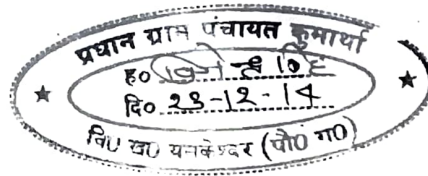 प्रधान ग्राम पंचायत कुमार्था
ह०
दि० 23-12-14
वि० ख० यमकेश्वर (पौ० ग०)